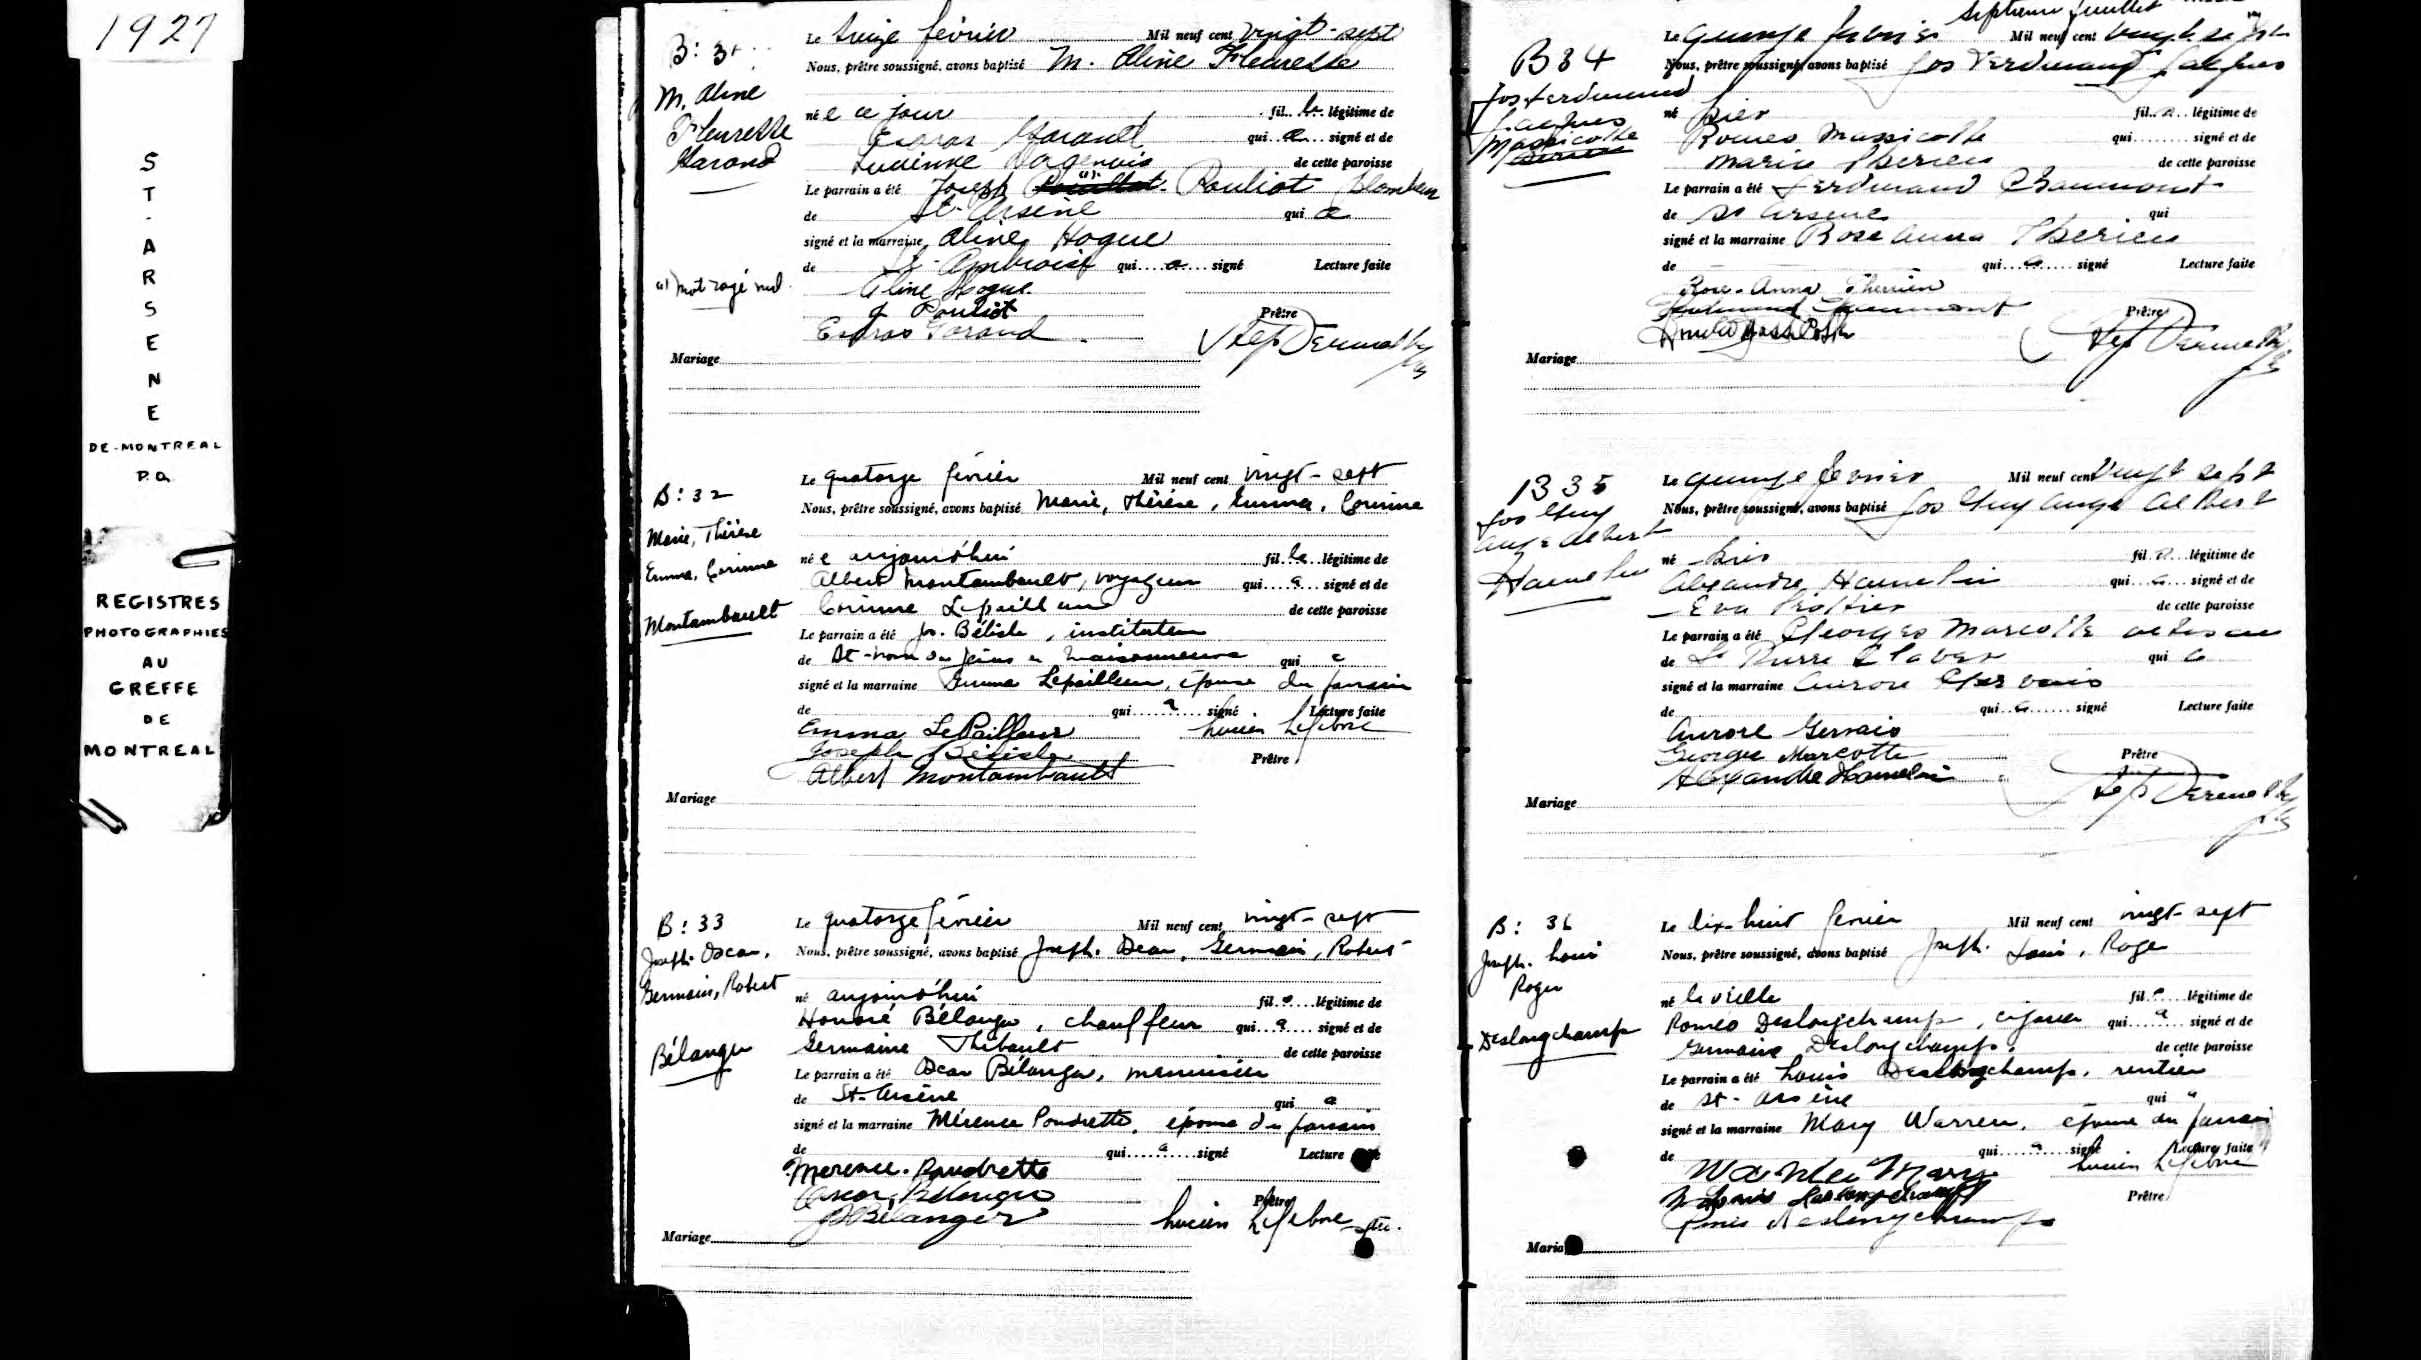 1927
S
T
-
A
R
S
E
N
E
DE-MONTREAL
P.Q.
REGISTRES
PHOTOGRAPHIES
AU
GREFFE
DE
MONTREAL
B: 31
M. Aline
Fleurette
Garand
(a) mot rayé nul.
Le treize février Mil neuf cent vingt-sept
Nous, prêtre soussigné, avons baptisé M. Aline Fleurette
né e ce jour fil le légitime de
Esdras Garand qui a signé et de
Lucienne Dagenais de cette paroisse
Le parrain a été Joseph Pouliot (a) Pouliot plombier
de St-Arsène qui a
signé et la marraine Aline Hogue
de St-Ambroise qui a signé Lecture faite
Aline Hogue
J Pouliot
Esdras Garand
Prêtre
Mariage
B: 32
Marie, Thérèse
Emma, Corinne
Montambault
Le quatorze février Mil neuf cent vingt-sept
Nous, prêtre soussigné, avons baptisé Marie, Thérèse, Emma, Corinne
né e aujourd'hui fil le légitime de
Albert Montambault, voyageur qui a signé et de
Corinne Lepailleur de cette paroisse
Le parrain a été Jos. Bélisle, instituteur
de St-Nom de Jésus de Maisonneuve qui a
signé et la marraine Emma Lepailleur, épouse du parrain
de qui a signé Lecture faite
Emma LePailleur Lucien Lefebvre
Joseph Bélisle Prêtre
Albert Montambault
Mariage
B: 33
Joseph. Oscar,
Germain, Robert
Bélanger
Le quatorze février Mil neuf cent vingt-sept
Nous, prêtre soussigné, avons baptisé Joseph. Oscar, Germain, Robert
né aujourd'hui fil s légitime de
Honoré Bélanger, chauffeur qui a signé et de
Germaine Thibault de cette paroisse
Le parrain a été Oscar Bélanger, menuisier
de St-Arsène qui a
signé et la marraine Mérence Poudrette, épouse du parrain
de qui a signé Lecture
Merence. Poudrette
Oscar, Bélanger Prêtre
Bélanger Lucien Lefebvre ptre.
Mariage
B 34
Jos Ferdinand
Jacques
Massicotte
septième juillet
Le quinze février Mil neuf cent vingt sept
Nous, prêtre soussigné, avons baptisé Jos Ferdinand Jacques
né hier fil s légitime de
Romeo Massicotte qui signé et de
Marie Therien de cette paroisse
Le parrain a été Ferdinand Chaumont
de St Arsene qui
signé et la marraine Rose Anna Therien
de qui a signé Lecture faite
Rose-Anna Therrien
Ferdinand Chaumont
Prêtre
Mariage
B 35
Jos Guy
Ange Albert
Hamelin
Le quinze fevrier Mil neuf cent vingt sept
Nous, prêtre soussigné, avons baptisé Jos Guy Ange Albert
né hier fil s légitime de
Alexandre Hamelin qui a signé et de
Eva Trottier de cette paroisse
Le parrain a été Georges Marcotte
de St Pierre Claver qui a
signé et la marraine Aurore Gervais
de qui a signé Lecture faite
Aurore Gervais
Georges Marcotte
Alexandre Hamelin
Prêtre
Mariage
B: 36
Joseph. Louis
Roger
Deslongchamps
Le dix-huit février Mil neuf cent vingt-sept
Nous, prêtre soussigné, avons baptisé Joseph. Louis, Roger
né la vieille fil s légitime de
Roméo Deslongchamps, cigarier qui a signé et de
Germaine Deslongchamps. de cette paroisse
Le parrain a été Louis Deslongchamps, rentier
de St-Arsène qui a
signé et la marraine Mary Warren, épouse du parrain
de qui a signé Lecture faite
Lucien Lefebvre
Louis Deslongchamps Prêtre
Deslongchamps
Mariage